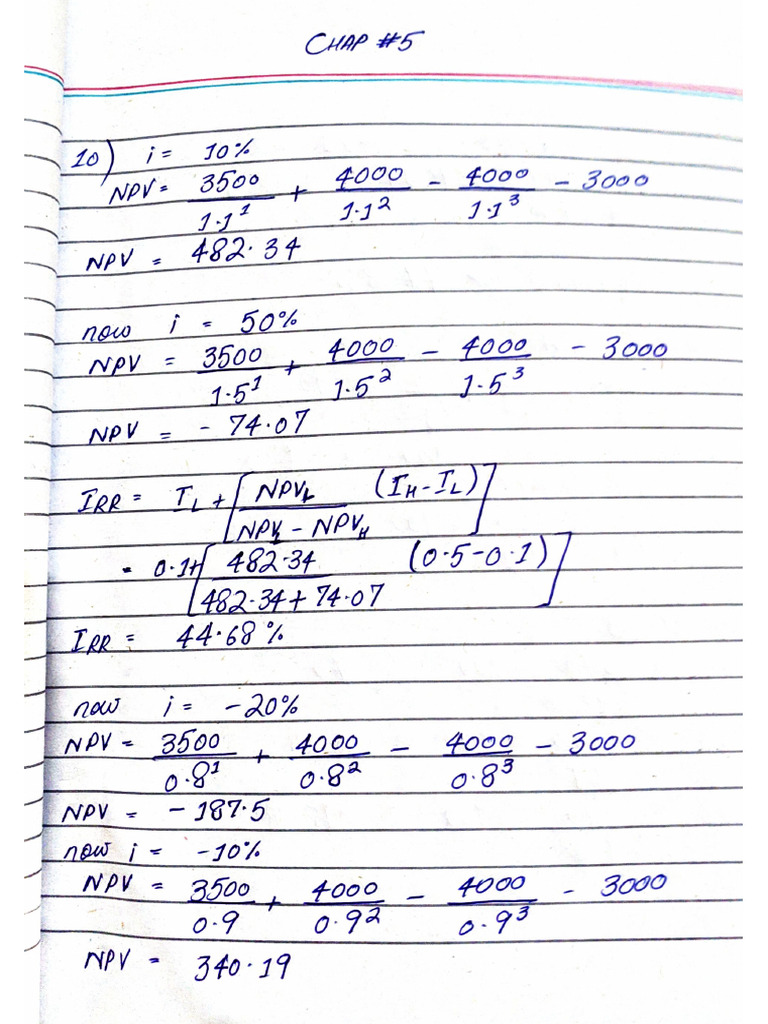 CHAP #5
10) i = 10%
NPV = 3500/1.1^1 + 4000/1.1^2 - 4000/1.1^3 - 3000
NPV = 482.34
now i = 50%
NPV = 3500/1.5^1 + 4000/1.5^2 - 4000/1.5^3 - 3000
NPV = - 74.07
IRR = IL + [NPVL/(NPVL - NPVH) (IH - IL)]
= 0.1+ [482.34/(482.34 + 74.07) (0.5-0.1)]
IRR = 44.68%
now i = -20%
NPV = 3500/0.8^1 + 4000/0.8^2 - 4000/0.8^3 - 3000
NPV = - 187.5
now i = -10%
NPV = 3500/0.9 + 4000/0.9^2 - 4000/0.9^3 - 3000
NPV = 340.19